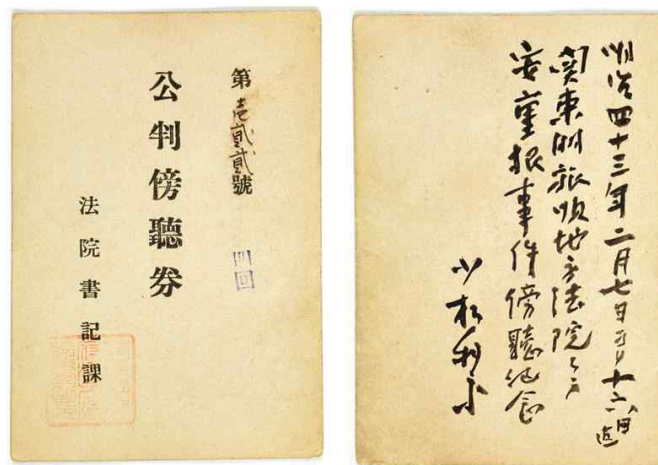 第壱貳貳號
四回
公判傍聽券
法院書記課
明治四十三年二月七日ヨリ十六日迠
関東州旅順地方法院ニテ
安重根事件傍聽紀念
小松